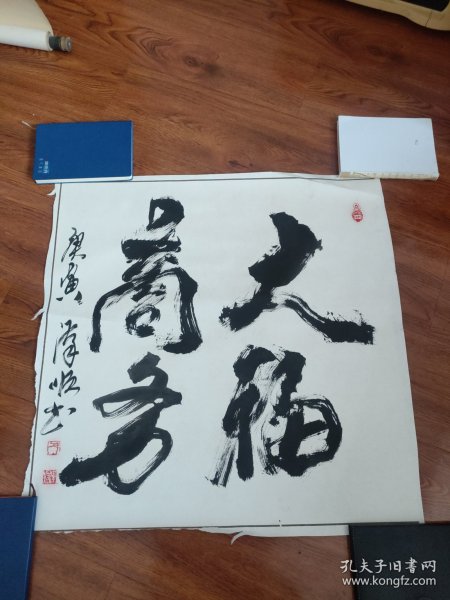 大福
商务
庚寅
汉顺书
孔夫子旧书网
www.kongfz.com